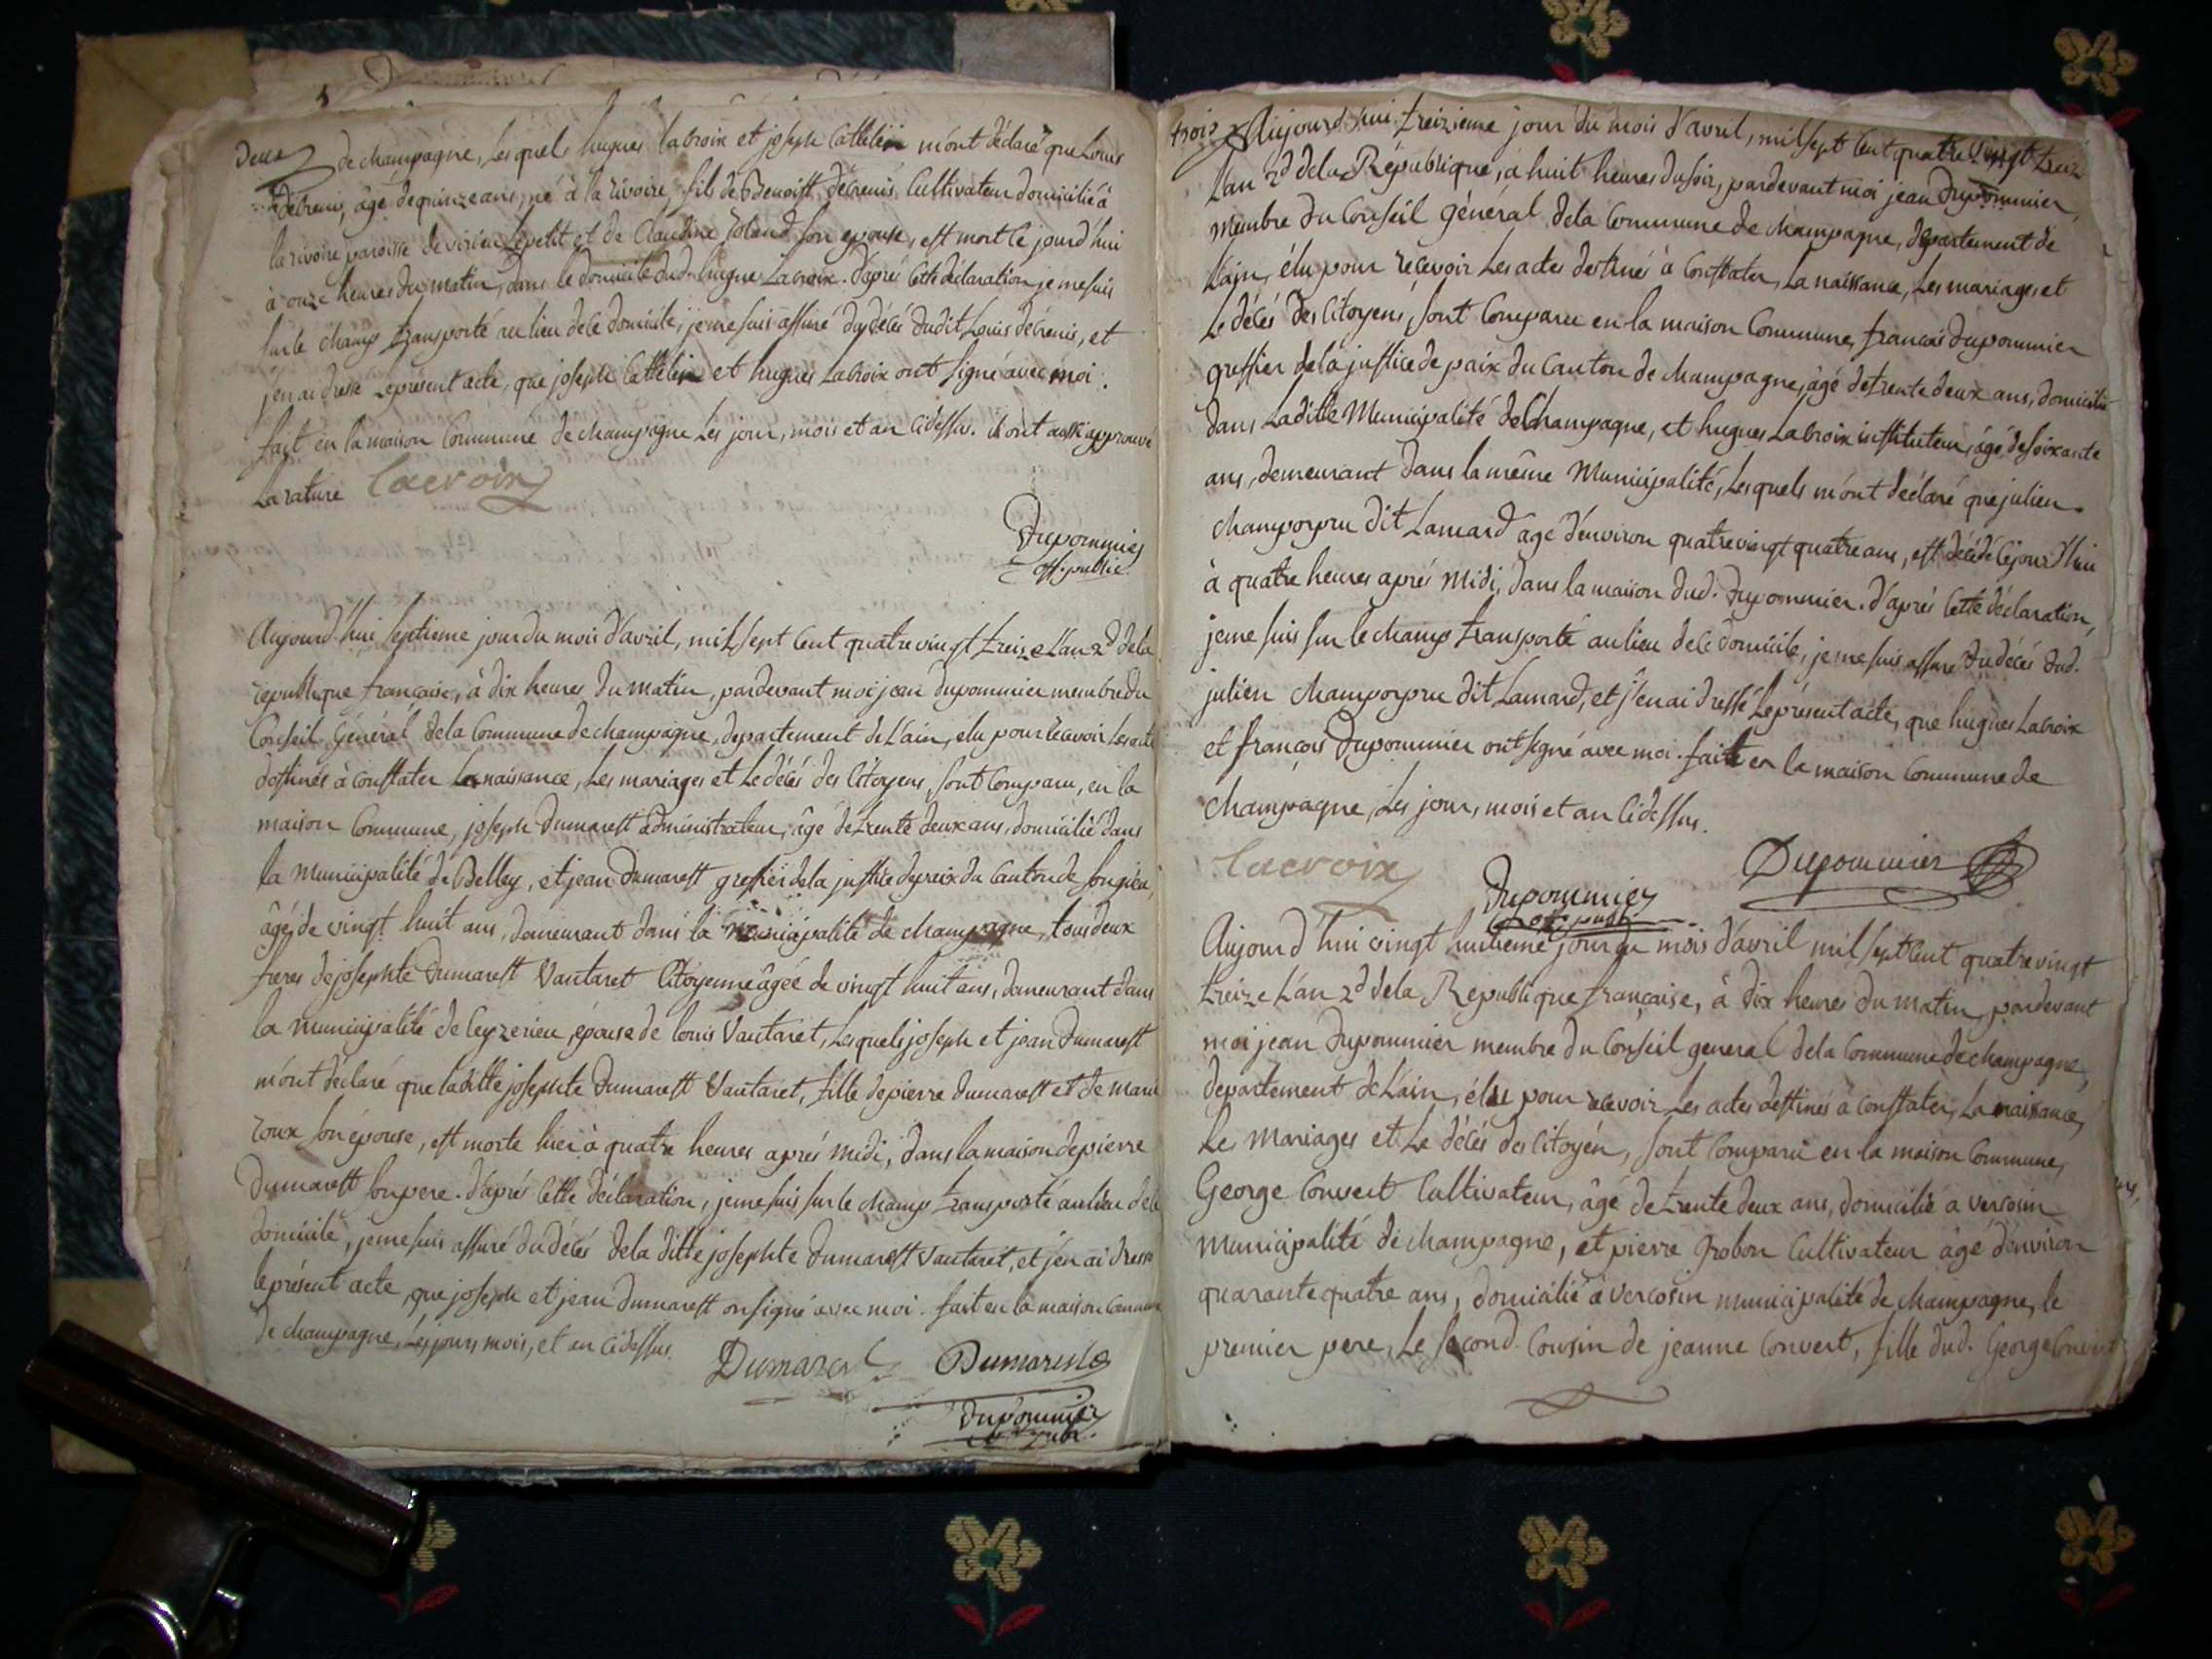 Deux de champagne, Lesquels hugues labroix et joseph Cattelin m'ont déclaré que Louis
décrenis, âgé de quinze ans, né à la rivoire, fils de Benoist décrenis Cultivateur domicilié à
la rivoire paroisse de virieu Lepetit et de Claudine son epouse, est mort ce jourd'hui
à onze heures du matin, dans le domicile dud. hugues Lacroix. d'après cette déclaration je me suis
sur le champ transporté au lieu de ce domicile, je me suis assuré du décès dudit Louis décrenis, et
j'en ai dressé Le présent acte, que joseph Cattelin et hugues Lacroix ont signé avec moi.
fait en la maison Commune de champagne Les jour, mois et an Cidessus. ils ont aussi approuvé
La rature Lacroix
Dupommier
off. public.
Aujourd'hui septieme jour du mois d'avril, mil sept Cent quatre vingt treize L'an 2d de la
république française, à dix heures du matin, pardevant moi jean dupommier membre du
Conseil Général de la Commune de champagne, departement de L'ain, elu pour recevoir Les actes
destinés à constater La naissance, Les mariages et Le décès des Citoyens, sont Comparu, en la
maison Commune, joseph Dumarest administrateur, âgé de trente deux ans, domicilié dans
la Municipalité de Belley, et jean Dumarest greffier de la justice de paix du Canton de songieu,
âgé de vingt huit ans, demeurant dans la municipalité de champagne, tous deux
freres de josephte Dumarest Vautaret Citoyenne âgée de vingt huit ans, demeurant dans
la municipalité de Ceyzerieu, épouse de louis Vautaret, Lesquels joseph et jean Dumarest
m'ont déclaré que laditte josephte Dumarest Vautaret, fille de pierre dumarest et de marie
roux son épouse, est morte hier à quatre heures après midi, dans la maison de pierre
Dumarest son pere. d'après Cette déclaration, je me suis sur le champ transporté au lieu de ce
domicile, je me suis assuré du décès de la ditte josephte Dumarest Vautaret, et j'en ai dressé
le présent acte, que joseph et jean dumarest on signé avec moi. fait en la maison Commune
de champagne, Les jours, mois, et an cidessus.
Dumarest Dumarest
Dupommier
off. publ.
trois Aujourd'hui treizieme jour du mois d'avril, mil sept Cent quatre Vingt treize
L'an 2d de la République, à huit heures du soir, pardevant moi jean Dupommier,
membre du Conseil général de la Commune de champagne, département de
L'ain, élu pour recevoir Les actes destinés à Constater, La naissance, Les mariages, et
Le décès des Citoyens, sont Comparu en la maison Commune, francois dupommier
greffier de la justice de paix du Canton de champagne, âgé de trente deux ans, domicilié
dans Laditte Municipalité de Champagne, et hugues Lacroix instituteur, âgé de soixante
ans, demeurant dans la même Municipalité, Lesquels m'ont déclaré que julien
champorpru dit Lamard agé d'environ quatre vingt quatre ans, est décédé Cejourd'hui
à quatre heures après midi, dans la maison dud. Dupommier. d'après Cette déclaration,
je me suis sur le champ transporté au lieu de ce domicile, je me suis assuré du décès dud.
julien champorpru dit Lamard, et j'en ai dressé Le présent acte, que hugues Labroix
et françois Dupommier ont signé avec moi. fait en la maison Commune de
champagne, Les jour, mois et an Cidessus.
Lacroix Dupommier Dupommier
off. publ.
Aujourd'hui vingt huitieme jour du mois d'avril mil sept Cent quatre vingt
treize L'an 2d de la République française, à dix heures du matin, pardevant
moi jean Dupommier membre du Conseil general de la Commune de champagne,
departement de L'ain, élu pour recevoir, Les actes destinés à constater, La naissance,
Les Mariages et Le décès des Citoyén, sont Comparu en la maison Commune,
George Convert Cultivateur, âgé de trente deux ans, domicilié à vercosin
Municipalité de champagne, et pierre Grobon Cultivateur âgé d'environ
quarante quatre ans, domicilié à vercosin municipalité de champagne, le
premier pere, Le second Cousin de jeanne Convert, fille dud. George Convert